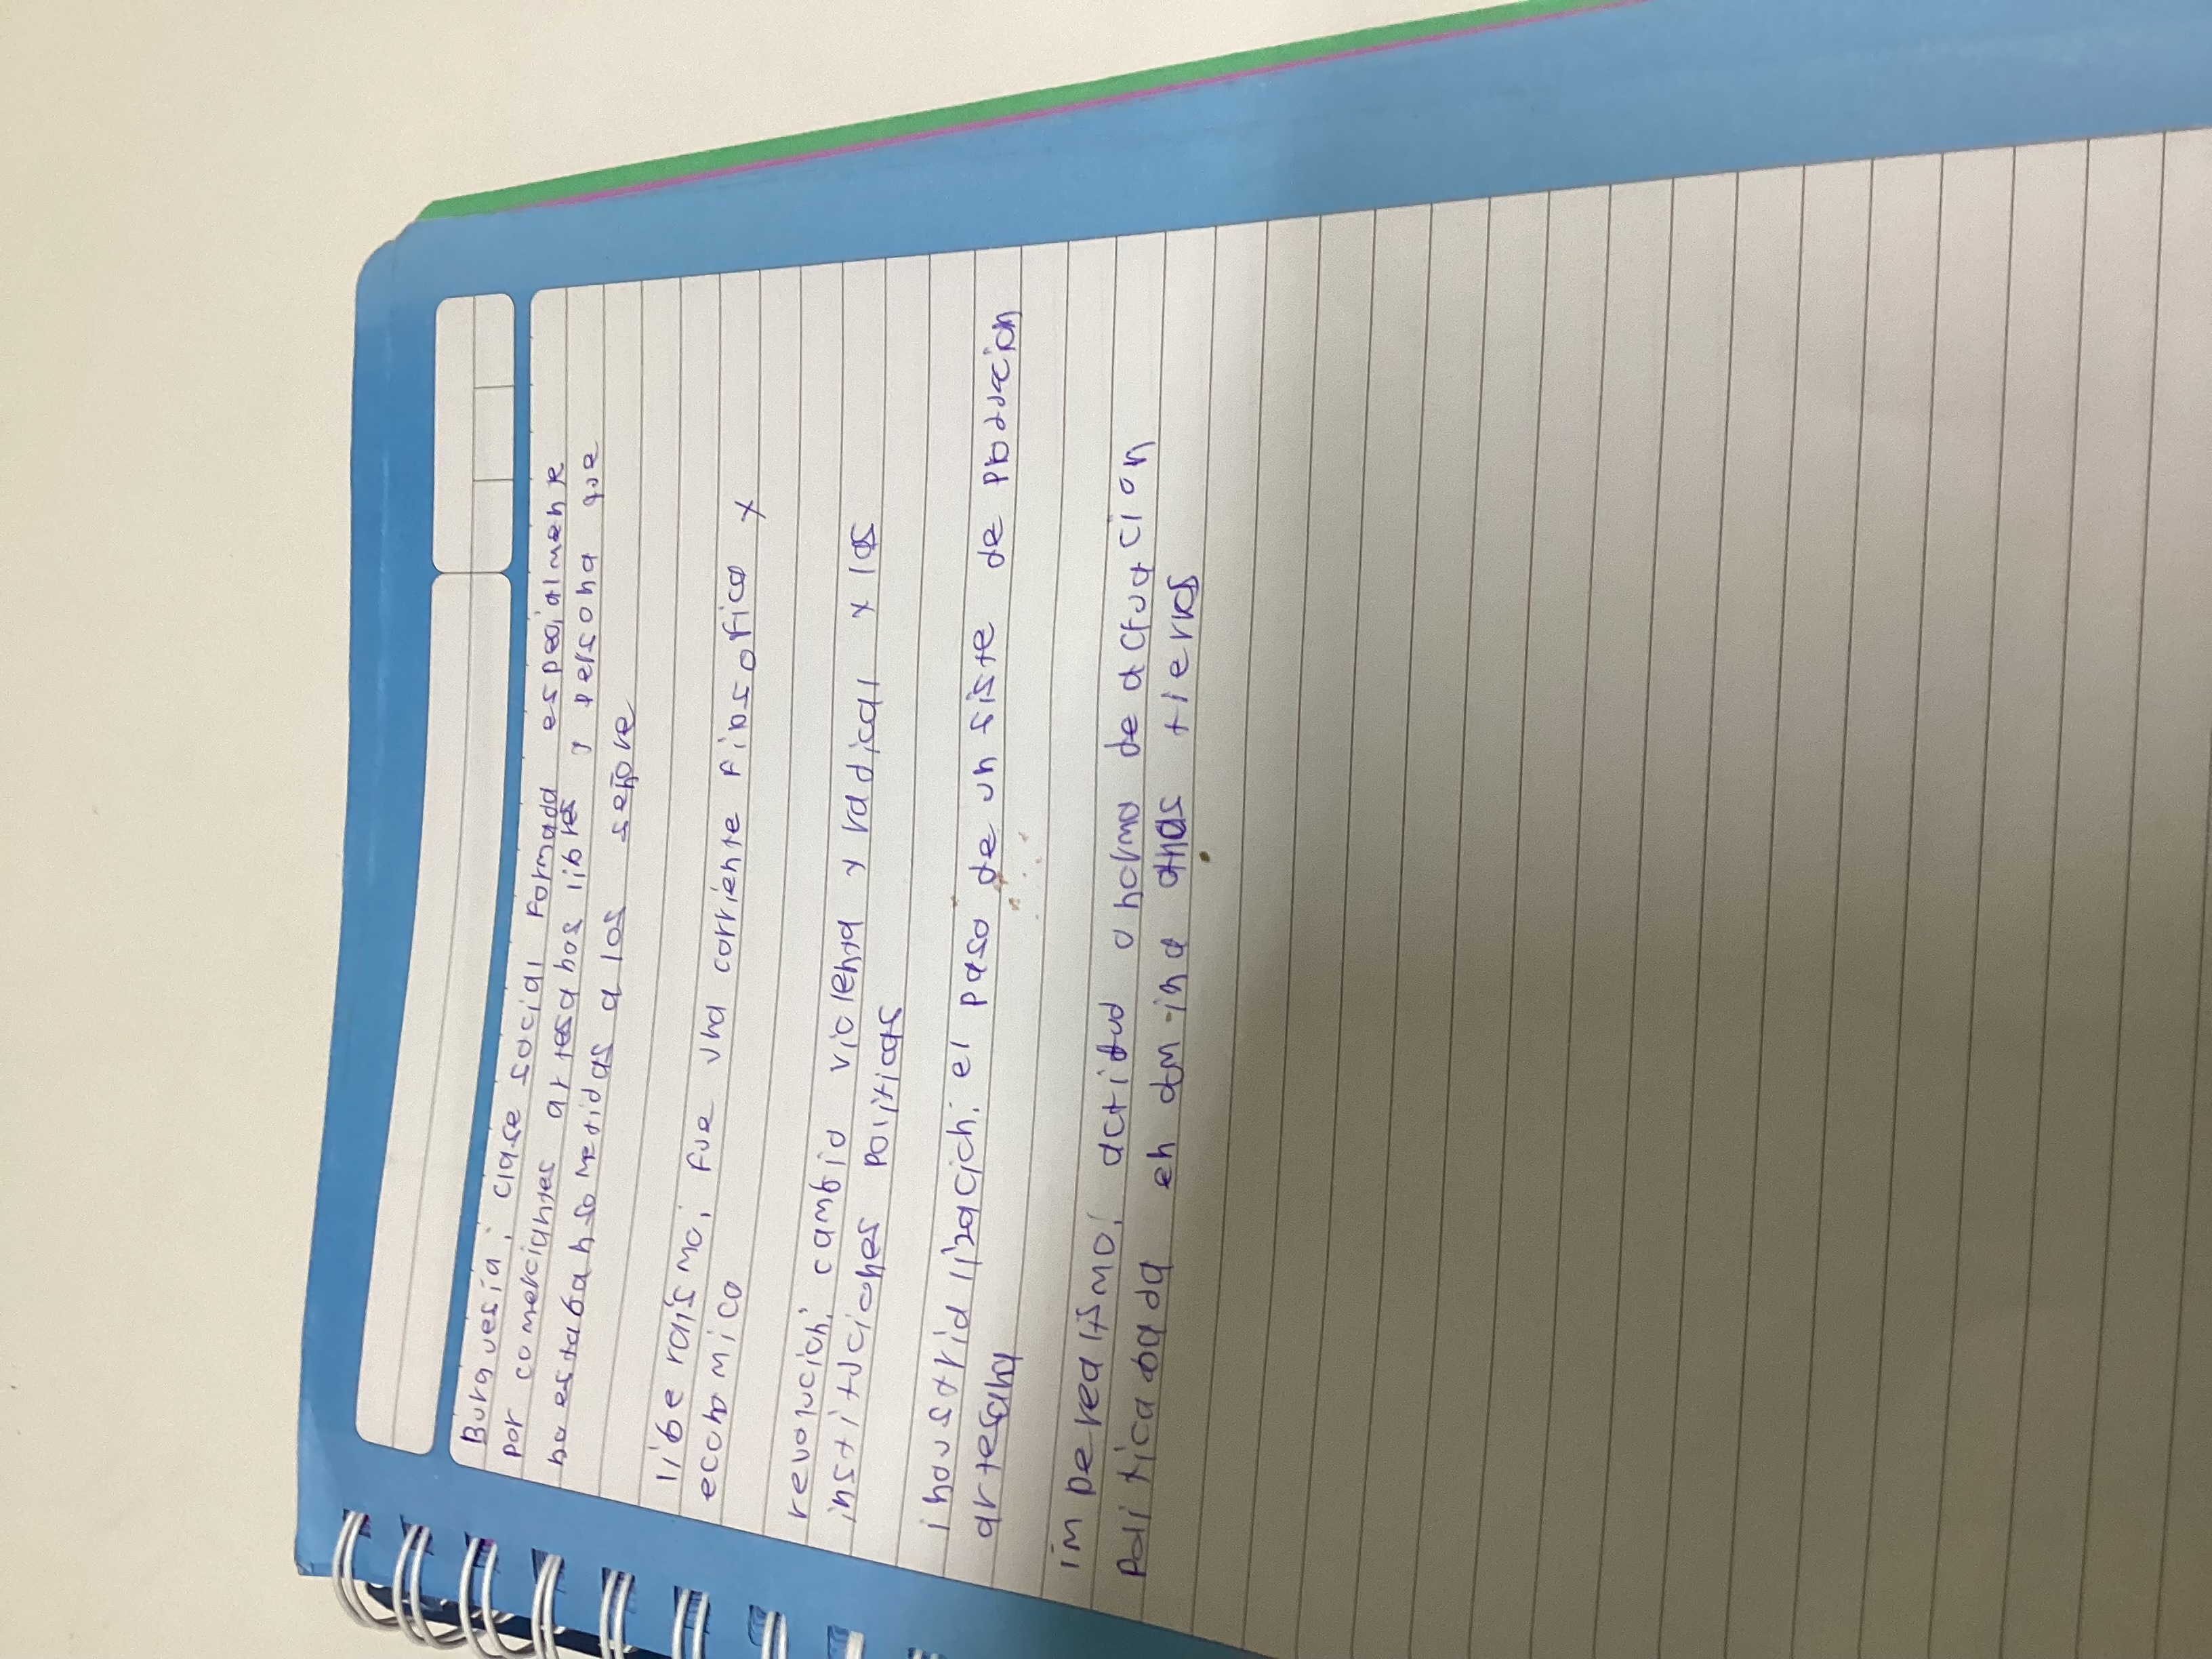 Burguesía: clase social formada especialmente
por comerciantes artesanos libres y persona que
no estaban sometidas a los señore
liberalismo: fue una corriente finsofica y
economico
revolución: cambio violenta y radical y las
instituciones politicas
industrialización: el paso de un siste de producion
artesana
imperealismo: actitud o norma de actuación
politica en domina